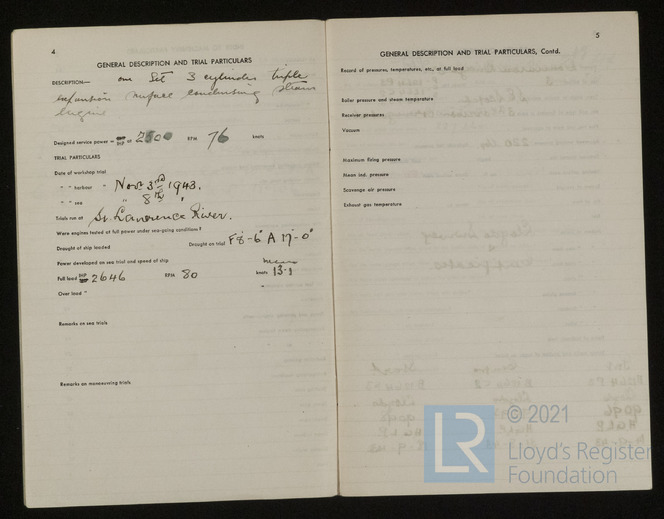 4
GENERAL DESCRIPTION AND TRIAL PARTICULARS
DESCRIPTION:— one Set 3 cylinder triple
expansion surface condensing steam
engine
Designed service power = at 2500 RPM 76 knots
TRIAL PARTICULARS
Date of workshop trial
" " harbour " Nov. 3rd 1943.
" " sea " 8th "
Trials run at St. Lawrence River.
Were engines tested at full power under sea-going conditions?
Draught of ship loaded Draught on trial F 8'-6" A 17'-0"
Power developed on sea trial and speed of ship
Full load 2646 RPM 80 knots 13.1
Over load "
Remarks on sea trials
Remarks on manœuvring trials
5
GENERAL DESCRIPTION AND TRIAL PARTICULARS, Contd.
Record of pressures, temperatures, etc., at full load
Boiler pressure and steam temperature
Receiver pressures
Vacuum
Maximum firing pressure
Mean ind. pressure
Scavenge air pressure
Exhaust gas temperature
LR
© 2021
Lloyd's Register
Foundation